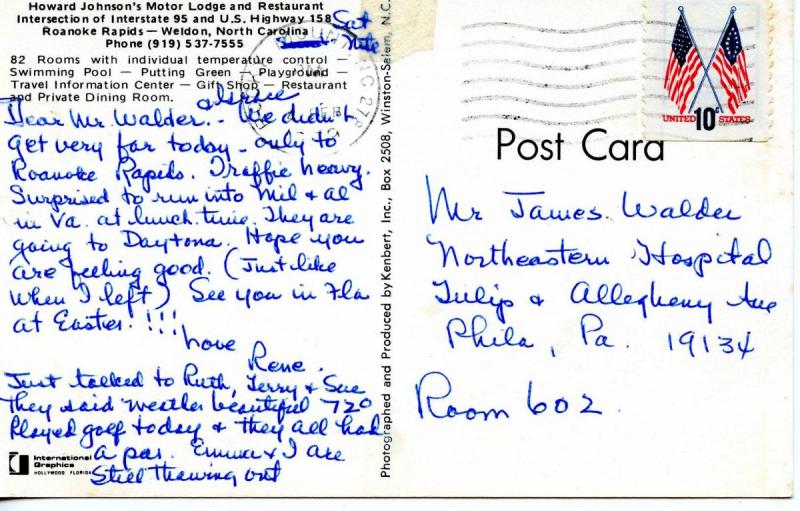 Howard Johnson's Motor Lodge and Restaurant
Intersection of Interstate 95 and U.S. Highway 158
Roanoke Rapids — Weldon, North Carolina
Phone (919) 537-7555
Sat
Nite
82 Rooms with individual temperature control —
Swimming Pool — Putting Green — Playground —
Travel Information Center — Gift Shop — Restaurant
and Private Dining Room.
Dear Mr Walder. - We didn't
get very far today - only to
Roanoke Rapids. Traffic heavy.
Surprised to run into Mil & al
in Va. at lunch time. They are
going to Daytona. Hope you
are feeling good. (Just like
when I left) See you in Fla
at Easter. !!!
Love
Rene.
Just talked to Ruth, Jerry & Sue
They said weather beautiful 72°
Played golf today & they all had
a par. Emma & I are
still thawing out
International
Graphics
HOLLYWOOD FLORIDA
Photographed and Produced by Kenbert, Inc., Box 2508, Winston-Salem, N.C.
10c
UNITED STATES
Post Card
Mr James Walder
Northeastern Hospital
Tulip & Allegheny Ave
Phila, Pa. 19134
Room 602